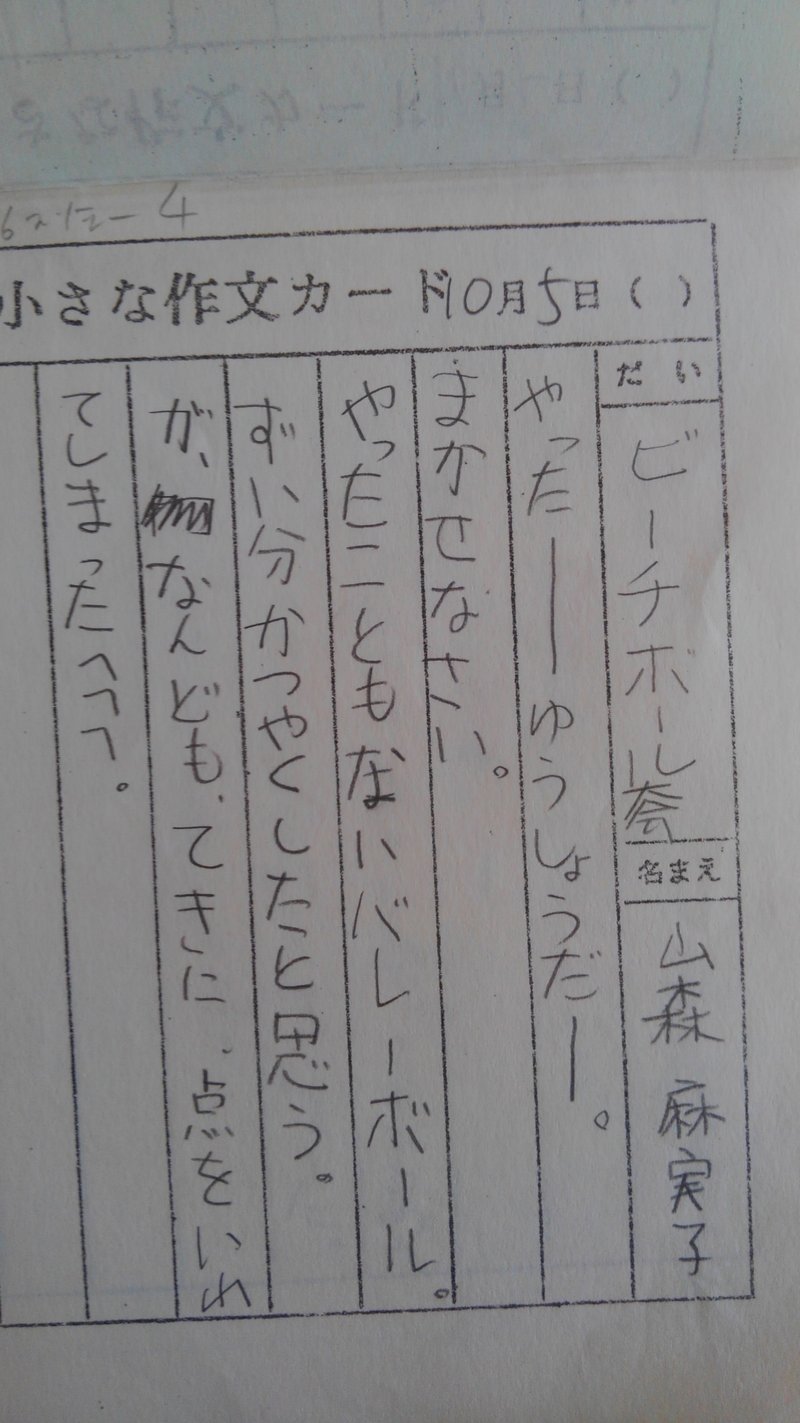 小さな作文カード 10月5日（ ）
だい ビーチボール大会
名まえ 山森 麻実子
やったーーゆうしょうだー。
まかせなさい。
やったこともないバレーボール。
ずい分かつやくしたと思う。
が、なんども、てきに、点をいれ
てしまったへへへ。